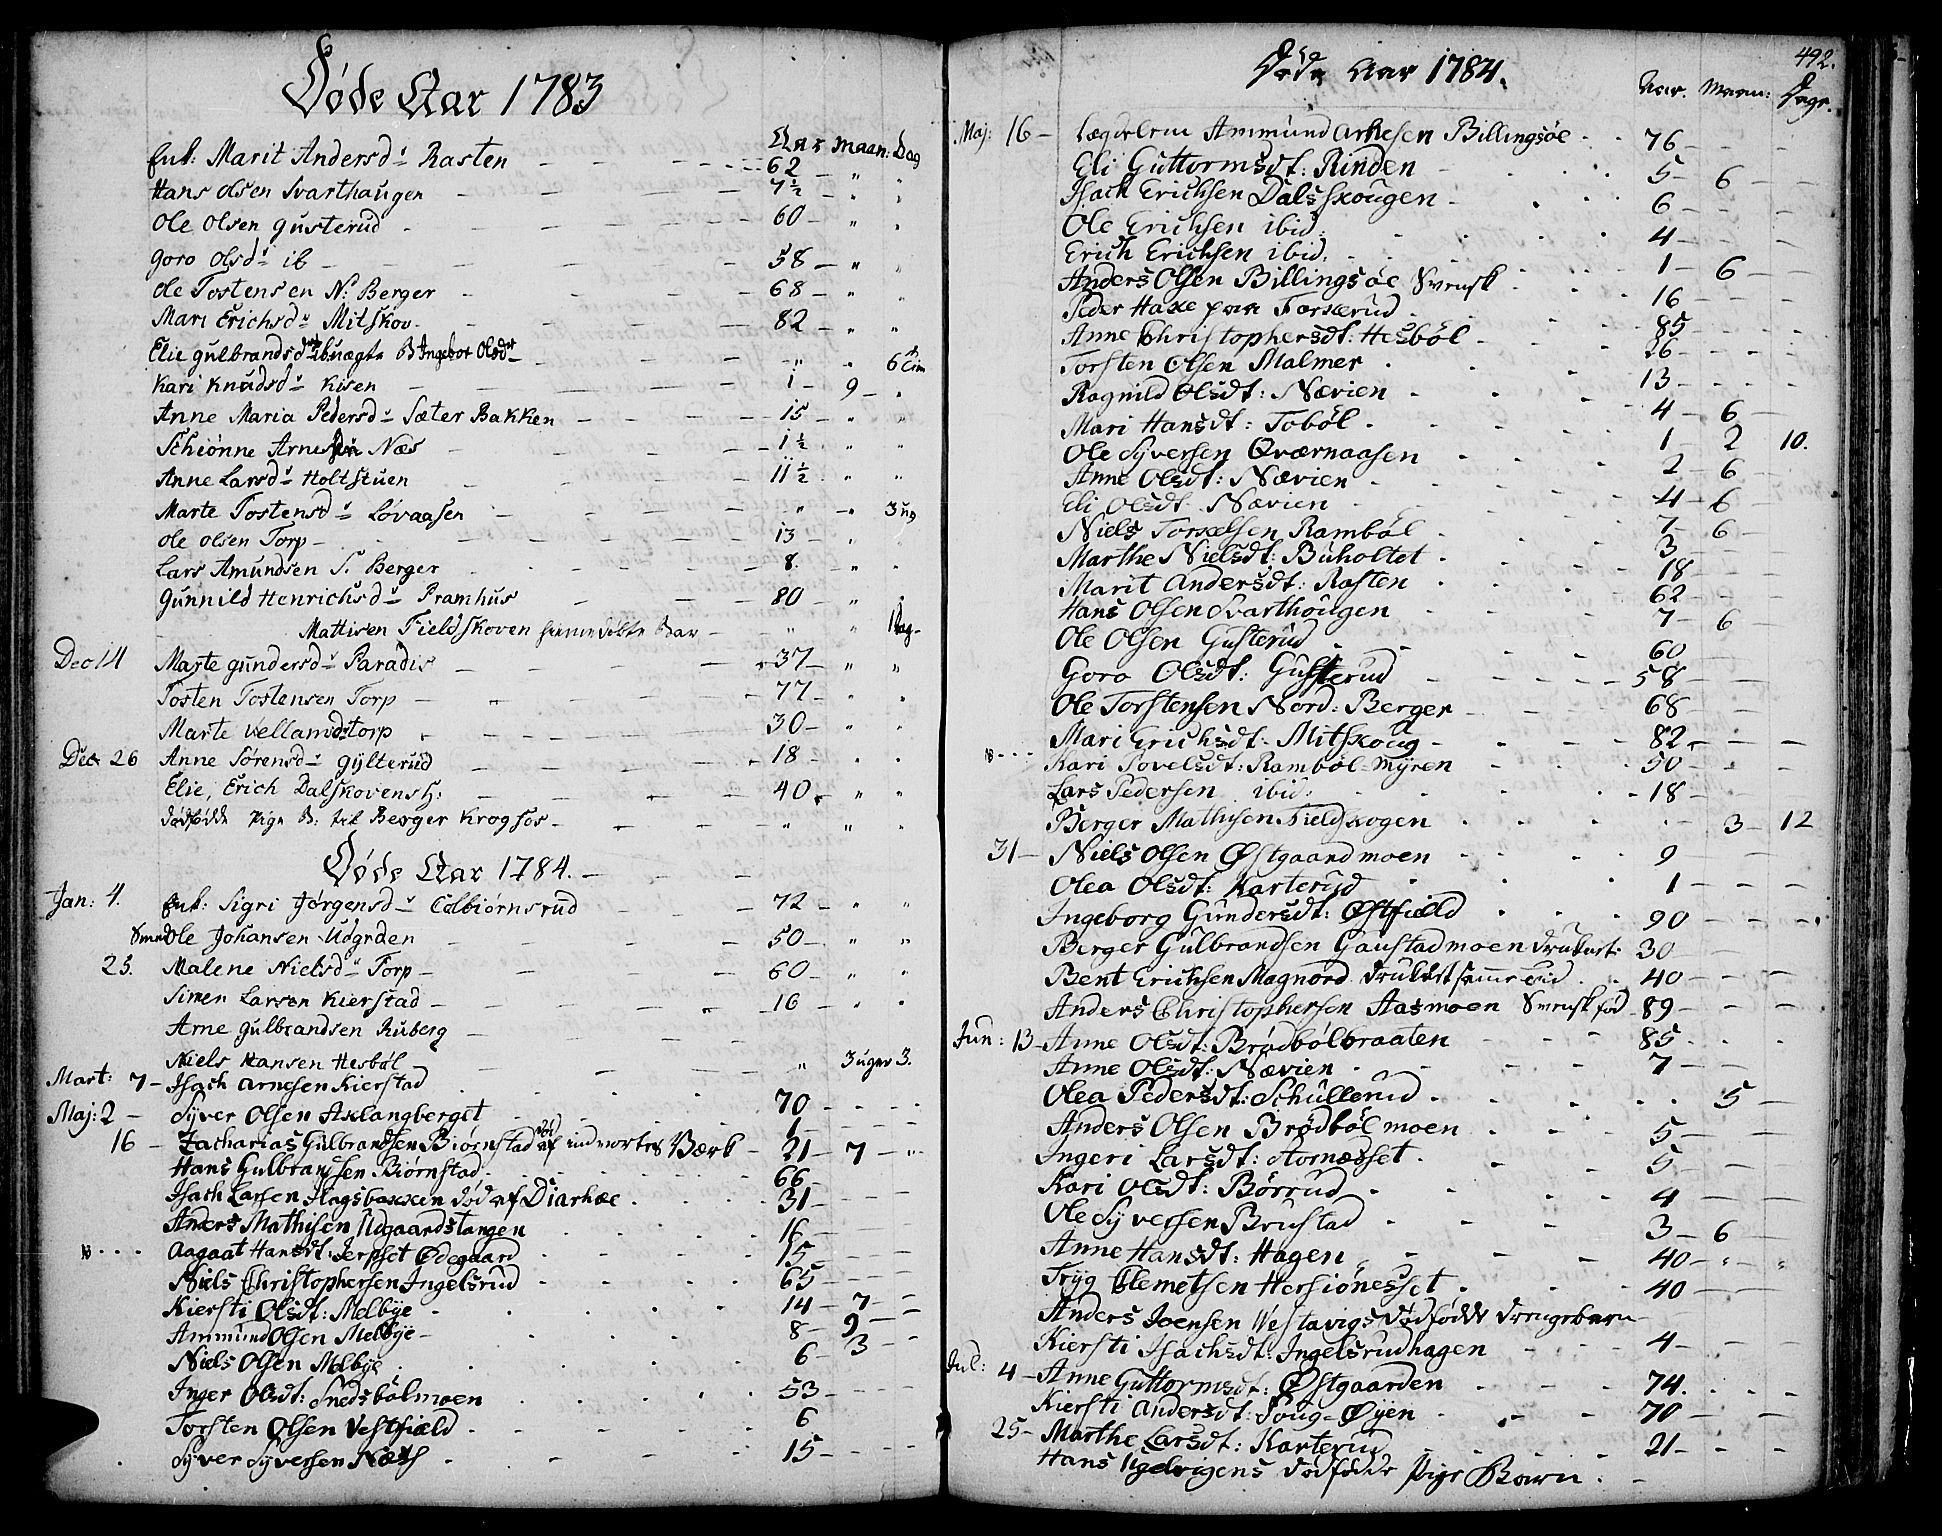 Døde Aar 1783
Aar Maan: Dag
Enk: Marit Andersdr Rasten 62
Hans Olsen Svarthaugen 7½
Ole Olsen Gusterud 60
Goro Olsdr ib 58
Ole Tostensen N: Berger 68
Mari Erichsdr Mitskov 82
Elie Gulbrandsd uægte B Ingebor Olsdr 6
Kari Knudsdr Kisen 1 9
Anne Maria Pedersdr Sæter Bakken 15
Schiønne Næs 1½
Anne Larsdr Holtstuen 11½
Marte Tostensdr Løvaasen 3 ug
Ole Olsen Torp 13
Lars Amundsen S. Berger 8
Gunnild Henrichsdr Pramhus 80
Mattisen Fieldskoven hiemedøbte Bar 1 Dag
Dec 14 Marte Gundersdr Paradis 37
Tosten Tostensen Torp 77
Marte Torp 30
Dec 26 Anne Sørensdr Gylterud 18
Elie, Erich Dalskovens H: 40
dødfødde Pige B: til Berger Krogfos
Døde Aar 1784.
Jan: 4. Enk: Sigri Jørgensdr Colbiørnsrud 72
Ole Johansen Udgrden 50
25. Malene Nielsdr Torp 60
Simen Larsen Kierstad 16
Arne Gulbrandsen Ruberg
Niels Hansen Hesbøl 3 uger 3.
Mart: 7 Isach Arnesen Kierstad
Maj: 2 Syver Olsen Aklangberget 70
1
16 Zacharias Gulbrandsen Biørnstad af indvortes Værk 21 7
Hans Gulbrandsen Biørnstad 66
Isach Larsen Hagsbakken død af Diarhæe 31
Anders Mathisen Udgaardstangen 16
Aagaat Hansdt: Jerpset Ødegaard 15
Niels Christophersen Ingelsrud 65
Kiersti Olsdt: Melbye 14 7
Ammund Olsen Melbye 8 9
Niels Olsen Melbye 6 3
Inger Olsdt: Snedsbølmoen 53
Torsten Olsen Vestfield 6
Syver Syversen Næss 15
492.
Døde Aar 1784.
Aar. Maan: Dage.
Maj: 16 Lægdslem Ammund Arnesen Billingsøe 76
Eli Guttormsdt: Rinden 5 6
Isach Erichsen Dalsskougen 6
Ole Erichsen ibid: 4
Erich Erichsen ibid. 1 6
Anders Olsen Billingsøe Svensk 16
Peder Haxe paa Torkerud 85
Anne Christophersdt: Hesbøl 26
Torsten Olsen Malmer 13
Ragnild Olsdt: Nævien 4 6
Mari Hansdt: Tobøl 1 2 10.
Ole Syversen Qværnaasen 2 6
Anne Olsdt: Nævien 4 6
Eli Olsdt Nævien 7 6
Niels Torkelsen Rambøl 3
Marthe Nielsdt: Buholtet 18
Marit Andersdt: Rasten 62
Hans Olsen Svarthougen 7 6
Ole Olsen Gusterud 60
Goro Olsdt: Gusterud 58
Ole Torstensen Nord: Berger 68
Mari Erichsdt: Mitskoug 82
Kari Povelsdt: Rambøl-Myren 50
Lars Pedersen ibid: 18
Berger Mathisen Fieldskogen 3 12
31 Niels Olsen Østgaardmoen 9
Olea Olsdt: Karterud 1
Ingeborg Gundersdt: Østfield 90
Berger Gulbrandsen Gaustadmoen druknet 30
Bent Erichsen Magnord druknet samme tid 40
Anders Christophersen Aasmoen Svensk fød 89
Jun: 13 Anne Olsdt: Brødbølbraaten 85
Anne Olsdt: Nævien 7
Olea Pedersdt: Schullerud 5
Anders Olsen Brødbølmoen 5
Ingeri Larsdt: Aornæsset 5
Kari Olsdt: Børrud 4
Ole Syversen Brustad 3 6
Anne Hansdt: Hagen 40
Tryg Clemetsen Hersiønesset 40
Anders Joensen Vestavigs dødfødde drengebarn
Kiersti Isachsdt: Ingelsrudhagen 4
Jul: 4 Anne Guttormsdt: Østgaarden 74.
Kiersti Andersdt: Poug-Øyen 70
25 Marthe Larsdt: Karterud 21
Hans dødfødde Pige Barn.